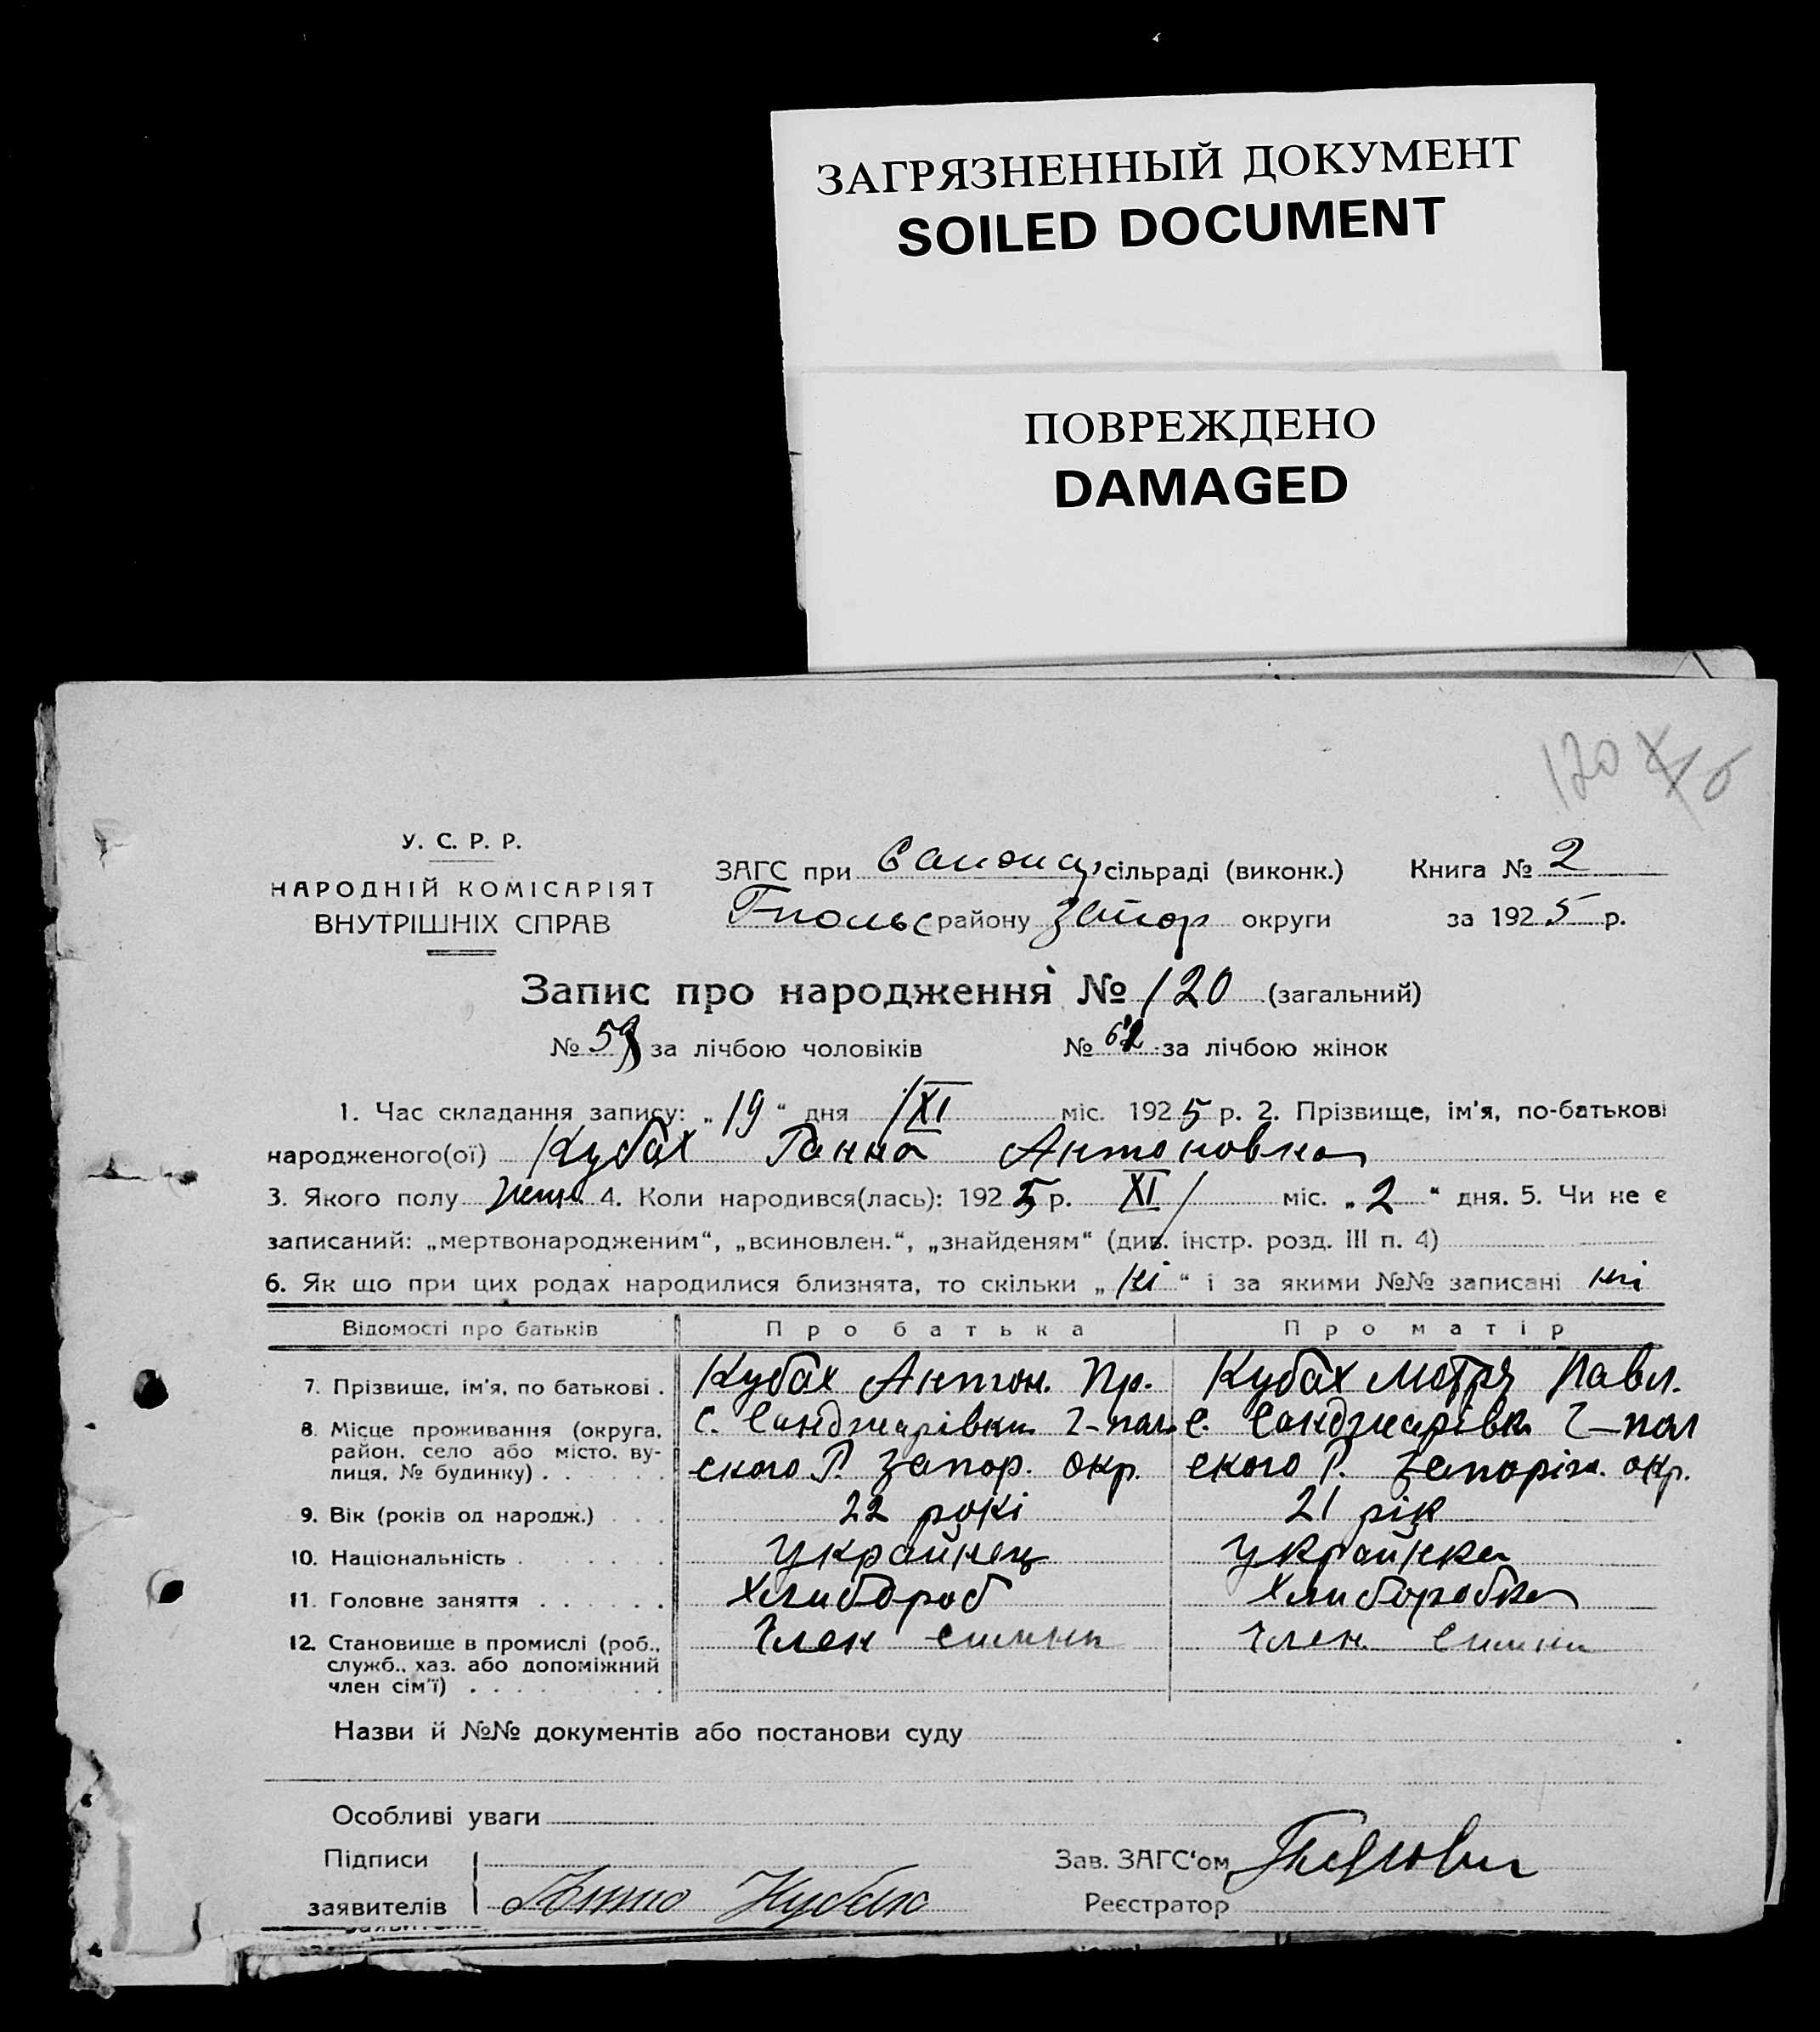 ЗАГРЯЗНЕННЫЙ ДОКУМЕНТ
SOILED DOCUMENT
ПОВРЕЖДЕНО
DAMAGED
120
У. С. Р. Р.
НАРОДНІЙ КОМІСАРІЯТ
ВНУТРІШНІХ СПРАВ
ЗАГС при сільраді (виконк.) Книга № 2
району Запор округи за 1925 р.
Запис про народження № 120 (загальний)
№ за лічбою чоловіків № 62 за лічбою жінок
1. Час складання запису: „19“ дня XI міс. 1925 р. 2. Прізвище, ім'я, по-батькові
народженого(ої) Кубах Ганна Антоновна
3. Якого полу 4. Коли народився(лась): 1925 р. XI міс. „2“ дня. 5. Чи не є
записаний: „мертвонародженим“, „всиновлен.“, „знайденям“ (див. інстр. розд. III п. 4)
6. Як що при цих родах народилися близнята, то скільки „ні“ і за якими №№ записані ні
Відомості про батьків Про батька Про матір
7. Прізвище, ім'я, по батькові . Кубах Антон. Пр. Кубах Мотря Павл.
8. Місце проживання (округа, район, село або місто, вулиця, № будинку) . . . . . . с. Санджарівки Г-пол с. Санджарівк Г-пол
ского Р. Запор. окр. ского Р. Запоріз. окр.
9. Вік (років од народж.) . . . 22 рокі 21 рік
10. Національність . . . . . . Украйнец Украйнка
11. Головне заняття . . . . . . Хлибороб Хлиборобка
12. Становище в промислі (роб., служб., хаз. або допоміжний член сім'ї) . . . . Член симни Член. симни
Назви й №№ документів або постанови суду
Особливі уваги
Підписи Зав. ЗАГС'ом
заявителів Кубах Реєстратор